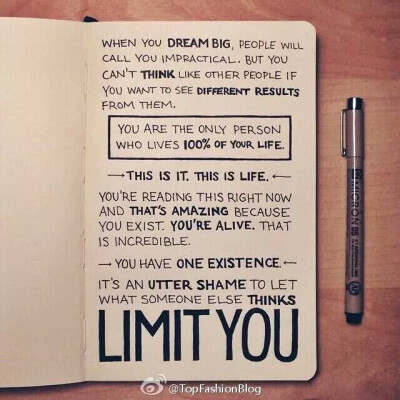 WHEN YOU DREAM BIG, PEOPLE WILL
CALL YOU IMPRACTICAL. BUT YOU
CAN'T THINK LIKE OTHER PEOPLE IF
YOU WANT TO SEE DIFFERENT RESULTS
FROM THEM.
YOU ARE THE ONLY PERSON
WHO LIVES 100% OF YOUR LIFE.
→THIS IS IT. THIS IS LIFE.←
YOU'RE READING THIS RIGHT NOW
AND THAT'S AMAZING BECAUSE
YOU EXIST. YOU'RE ALIVE. THAT
IS INCREDIBLE.
→YOU HAVE ONE EXISTENCE.←
IT'S AN UTTER SHAME TO LET
WHAT SOMEONE ELSE THINKS
LIMIT YOU
MICRON
@TopFashionBlog